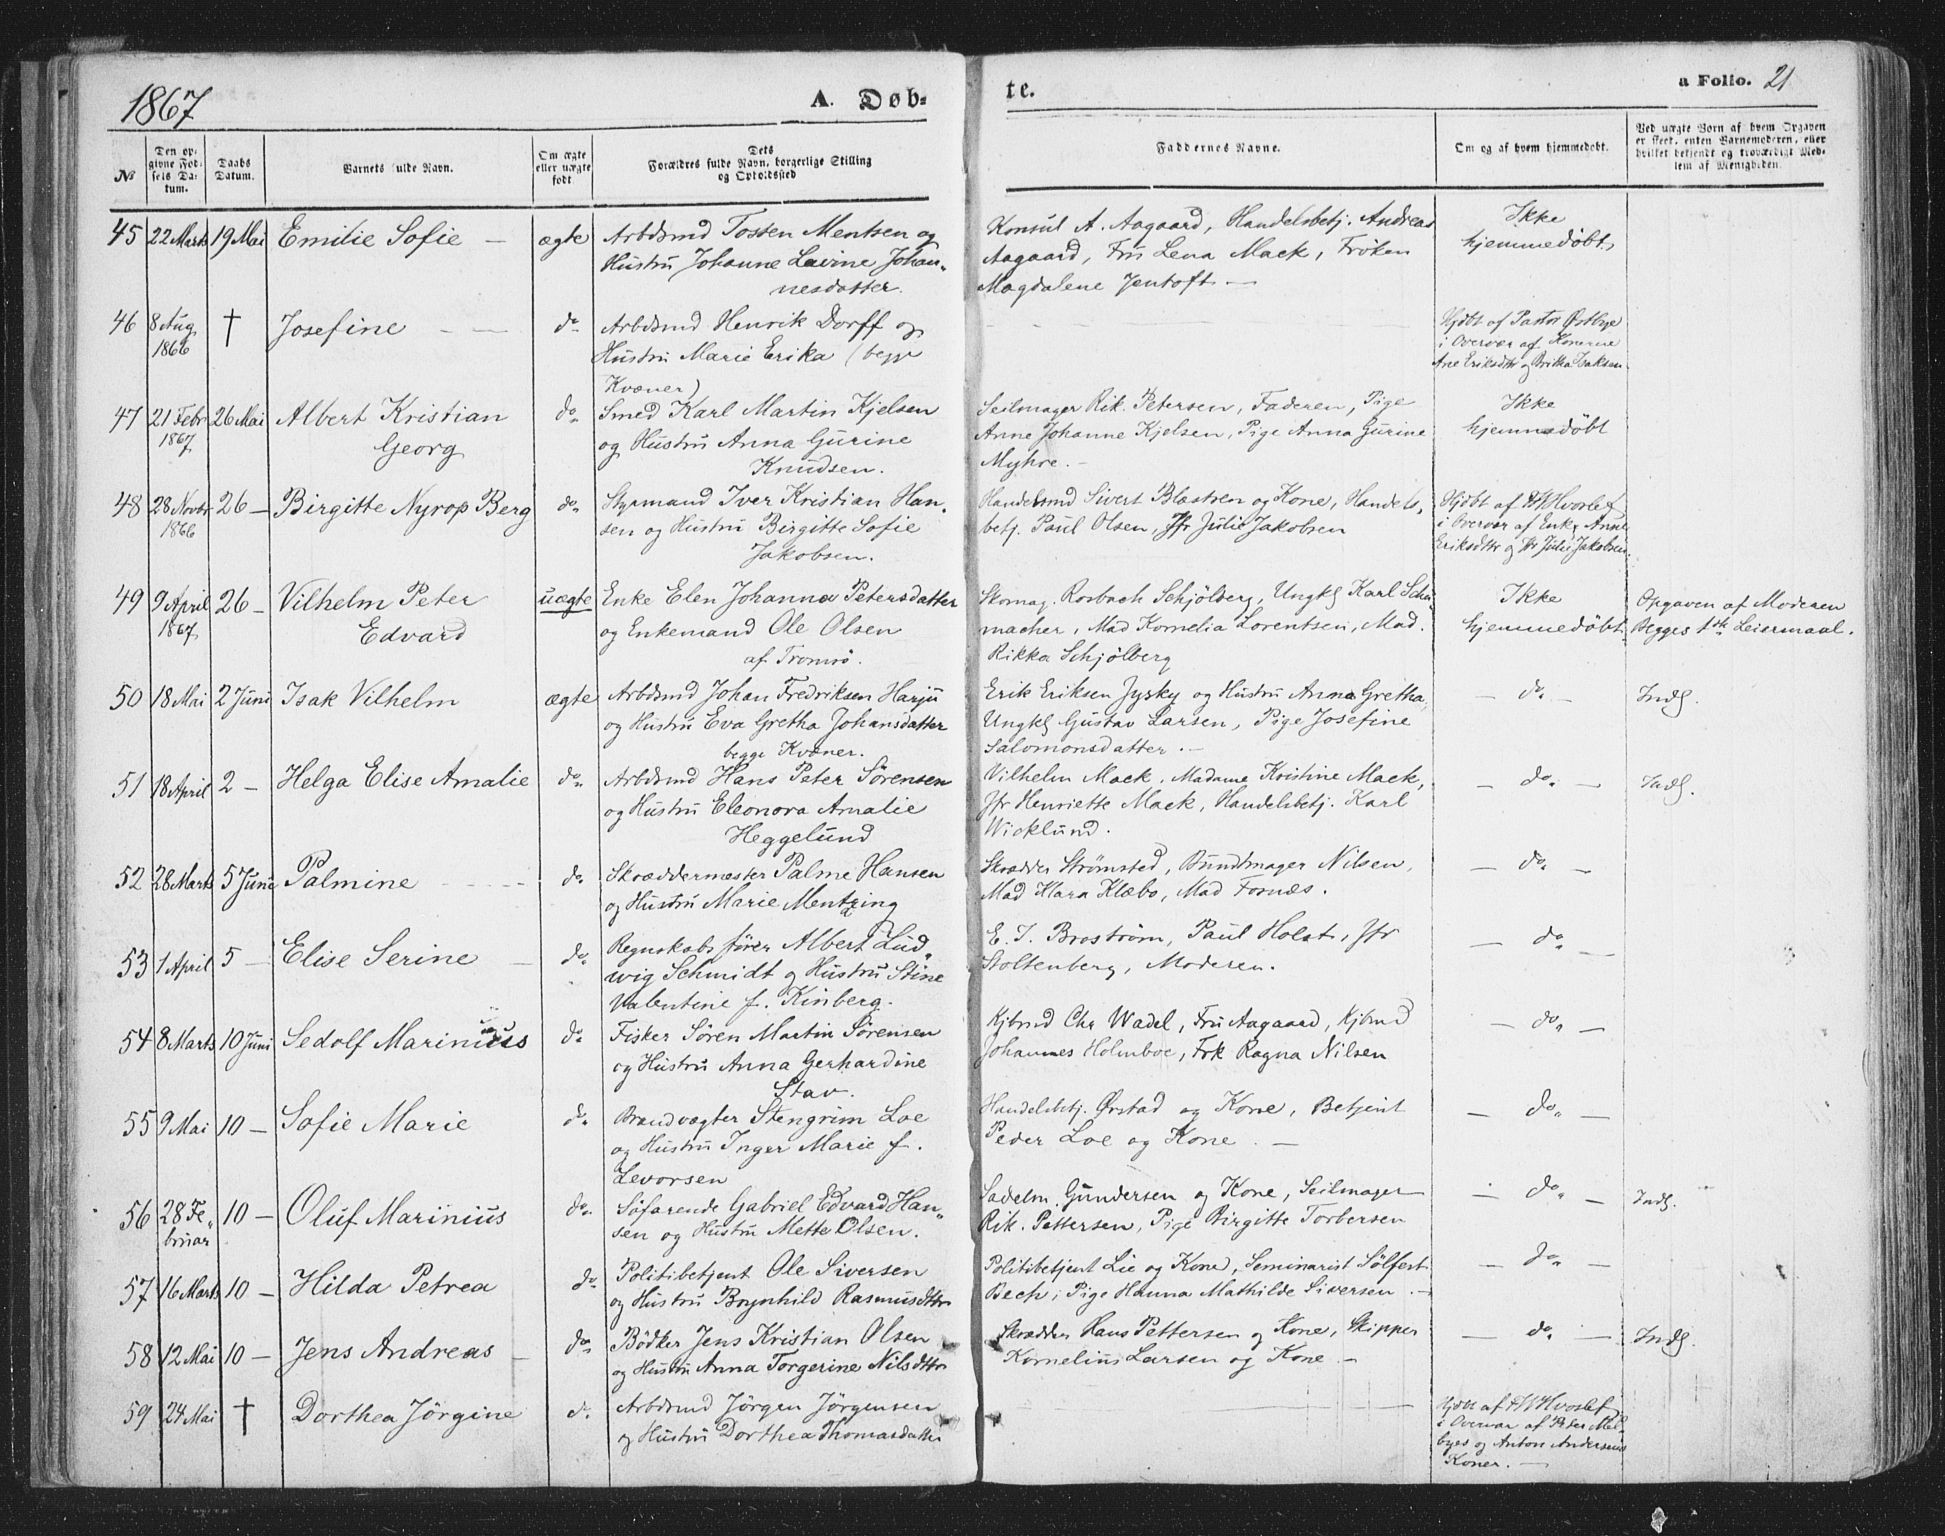 1867
A. Døb=
te.
a Folio. 21
No
Den op=
givne Fød=
sels Da=
tum.
Daabs
Datum.
Barnets fulde Navn.
Om ægte
eller uægte
født.
Dets
Forældres fulde Navn, borgerlige Stilling
og Opholdssted
Faddernes Navne.
Om og af hvem hjemmedøbt.
Ved uægte Børn af hvem Opgaven
er skeet, enten Barnemoderen, eller
hvilket betjendt og troværdigt Med=
lem af Menigheden.
45 22 Marts 19 Mai Emilie Sofie — ægte Arbdsmd Tosten Mentsen og
Hustru Johanne Lavine Johan=
nesdatter.
Konsul A. Aagaard, Handelsbetj. Andreas
Aagaard, Fru Lena Mack, Frøken
Magdalene Jentoft —
Ikke
hjemmedøbt
46 8 Aug 1866 † Josefine — — do Arbdsmd Henrik Dorff og
Hustru Marie Erika (begge
Kvæner)
Hjdbt af Pastor Østbye
i Overvær af Konerne
Ane Eriksdttr og Britha Isaksen
47 21 Febr 1867 26 Mai Albert Kristian
Georg
do Smed Karl Martin Kjelsen
og Hustru Anna Gurine
Knudsen.
Seilmager Rik. Petersen, Faderen, Pige
Anne Johanne Kjelsen, Pige Anna Gurine
Myhre. —
Ikke
hjemmedøbt
48 28 Novbr 1866 26 — Birgitte Nyrop Berg do Styrmand Iver Kristian Han=
sen og Hustru Birgitte Sofie
Jakobsen.
Handelsmd Sivert Blastsen og Kone, Handels=
betj. Paul Olsen, Jfr Julie Jakobsen
Hjdbt af Hvoslef
i Overvær af Enke Anne
Eriksdttr og Jfr Julie Jakobsen
49 9 April 1867 26 — Vilhelm Peter
Edvard
uægte Enke Elen Johanna Petersdatter
og Enkemand Ole Olsen
af Tromsø.
Skomag. Rosbach Schjölberg, Ungk. Karl Schu=
macher, Mad Kornelia Lorentsen, Mad.
Rikka Schjölberg
Ikke
hjemmedøbt
Opgaven af Moderen
Begges 1ste Leiermaal.
50 18 Mai 2 Juni Isak Vilhelm ægte Arbdsmd Johan Fredriksen Harju
og Hustru Eva Gretha Johansdatter
begge Kvæner.
Erik Eriksen Jysky og Hustru Anna Gretha,
Ungk. Gustav Larsen, Pige Josefine
Salomonsdatter. —
— do — Indf.
51 18 April 2 — Helga Elise Amalie do Arbdsmd Hans Peter Sörensen
og Hustru Eleonora Amalie
Heggelund
Vilhelm Mack, Madame Kristine Mack,
Jfr Henriette Mack, Handelsbetj. Karl
Wicklund.
— do — Indf.
52 28 Marts 5 Juni Palmine do Skræddermester Palme Hansen
og Hustru Marie Mentzing
Skrædder Strømsted, Bundtmager Nilsen,
Mad Klara Klæbo, Mad Fornæs.
— do —
53 1 April 5 — Elise Serine — do Regnskabsfører Albert Lud=
wig Schmidt og Hustru Stine
Valentine f. Kinberg.
E. J. Broström, Paul Holst, Jfr
Stoltenberg, Moderen.
— do —
54 8 Marts 10 Juni Sedolf Marinius do Fisker Sören Martin Sörensen
og Hustru Anna Gerhardine
Stav.
Kjbmd Chr Wadel, Fru Aagaard, Kjbmd
Johannes Holmboe, Frk Ragna Nilsen
— do —
55 9 Mai 10 — Sofie Marie do Brandvagter Stengrim Loe
og Hustru Inger Marie f.
Levorsen
Handelsbetj. Ørstad og Kone, Betjent
Peder Loe og Kone. —
— do —
56 28 Fe=
bruar 10 — Oluf Marinius do Söfarende Gabriel Edvard Han=
sen og Hustru Mette Olsen.
Sadelm. Gundersen og Kone, Seilmager
Rik. Pettersen, Pige Birgitte Torbersen
— do — Indf.
57 16 Marts 10 — Hilda Petrea do Politibetjent Ole Siversen
og Hustru Brynhild Rasmusdttr
Politibetjent Lie og Kone, Seminarist Sölfest
Bech, Pige Hanna Mathilde Siversen. —
— do —
58 12 Mai 10 — Jens Andreas — do Bödker Jens Kristian Olsen
og Hustru Anna Torgerine Nilsdttr
Skrædder Hans Pettersen og Kone, Skipper
Kornelius Larsen og Kone —
— do — Indf.
59 24 Mai † Dorthea Jörgine do Arbdsmd Jörgen Jörgensen
og Hustru Dorthea Thomasdatter
Hjdbt af Hvoslef
i Overvær af Peter Mel=
byes og Anton Andersens
Koner. —